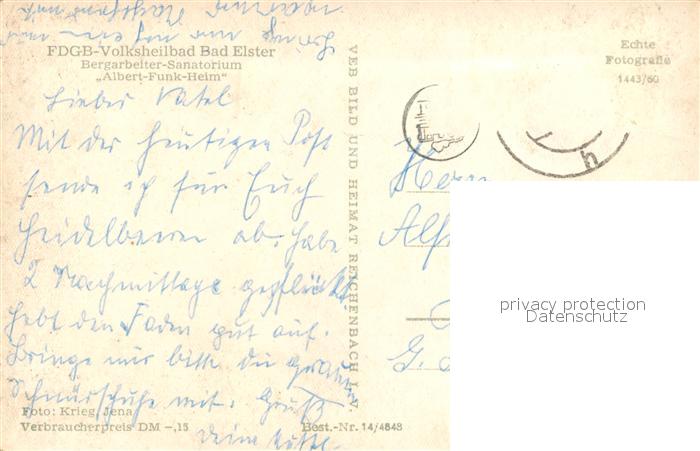 FDGB-Volksheilbad Bad Elster
Bergarbeiter-Sanatorium
„Albert-Funk-Heim“
Echte
Fotografie
1443/60
Lieber Vatel
Mit der heutigen Post
sende ich für Euch
Heidelbeeren ab. habe
2 Nachmittage gepflückt.
hebt den Faden gut auf.
Bringe mir bitte die grauen
Schnürschuhe mit. Gruß
Deine
VEB BILD UND HEIMAT REICHENBACH I. V.
Herrn
Alf
G.
h
privacy protection
Datenschutz
Foto: Krieg, Jena
Verbraucherpreis DM -,15
Best.-Nr. 14/4848